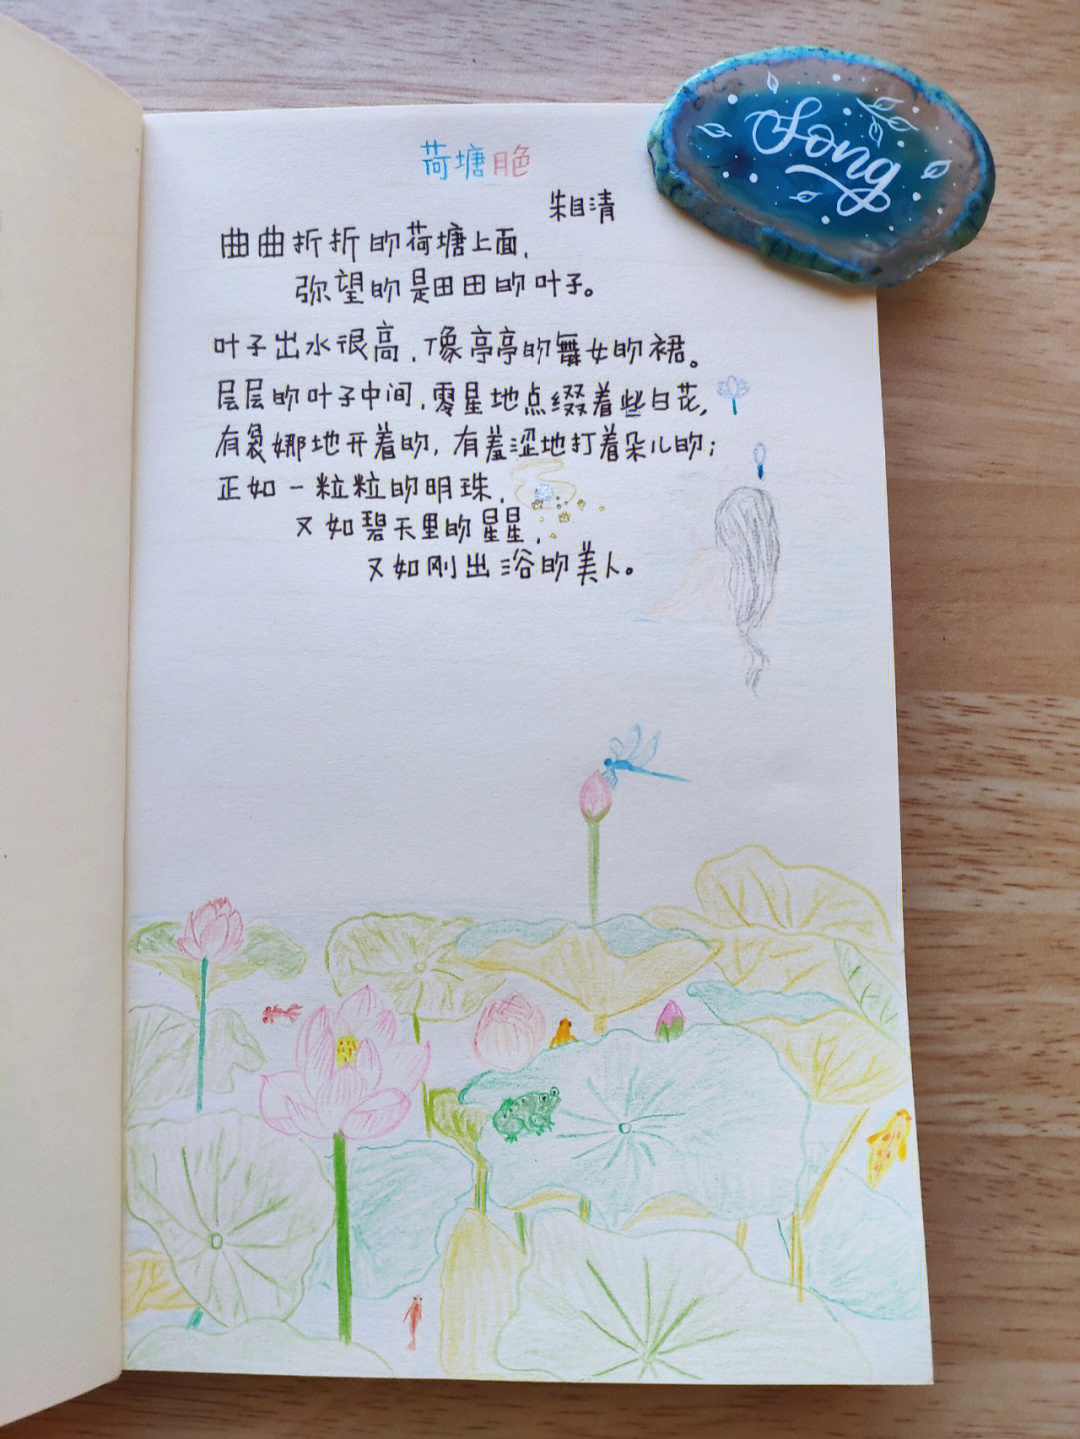 荷塘月色
朱自清
曲曲折折的荷塘上面,
弥望的是田田的叶子。
叶子出水很高,像亭亭的舞女的裙。
层层的叶子中间,零星地点缀着些白花,
有袅娜地开着的,有羞涩地打着朵儿的;
正如一粒粒的明珠,
又如碧天里的星星,
又如刚出浴的美人。
Song